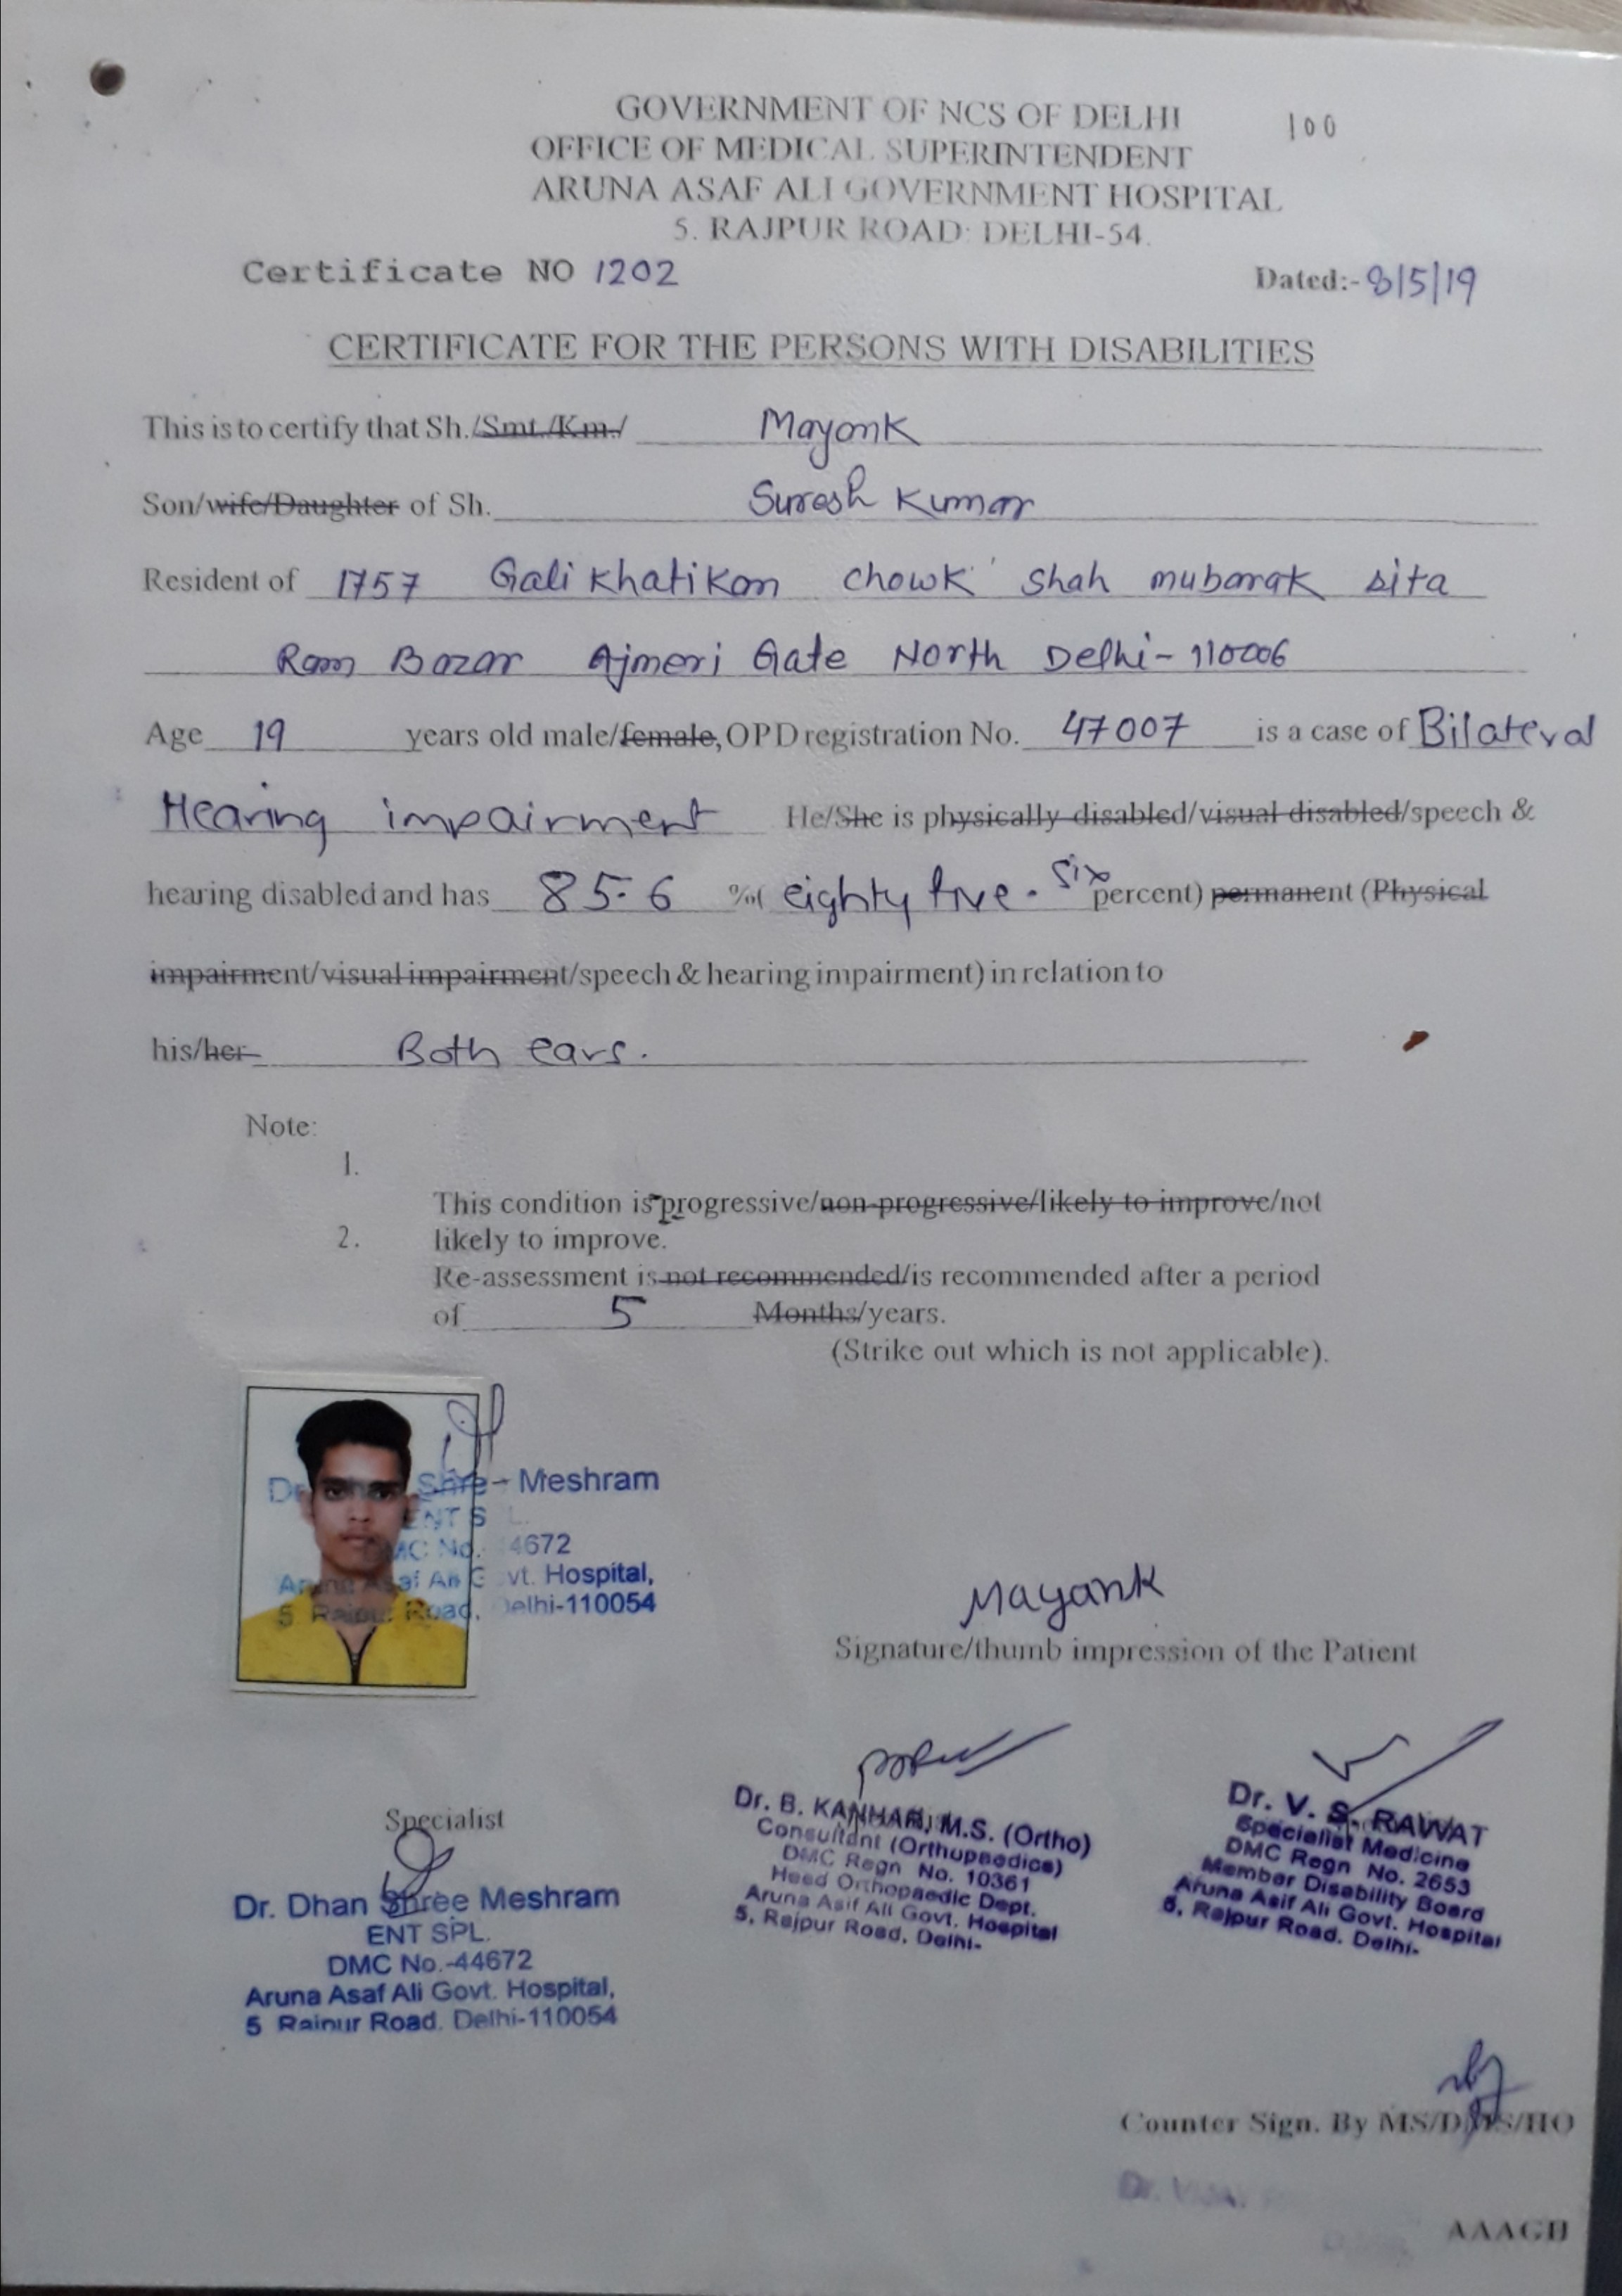 GOVERNMENT OF NCS OF DELHI
100
OFFICE OF MEDICAL SUPERINTENDENT
ARUNA ASAF ALI GOVERNMENT HOSPITAL
5. RAJPUR ROAD: DELHI-54.
Certificate NO 1202
Dated:- 8/5/19
CERTIFICATE FOR THE PERSONS WITH DISABILITIES
This is to certify that Sh./Smt./Km./ Mayank
Son/wife/Daughter of Sh. Suresh Kumar
Resident of 1757 Gali Khatikan chowk shah mubarak sita
Ram Bazar Ajmeri Gate North Delhi-110006
Age 19 years old male/female, OPD registration No. 47007 is a case of Bilateral
Hearing impairment He/She is physically disabled/visual disabled/speech &
hearing disabled and has 85.6 %( eighty five. six percent) permanent (Physical
impairment/visual impairment/speech & hearing impairment) in relation to
his/her Both ears.
Note:
1.
This condition is progressive/non-progressive/likely to improve/not
2. likely to improve.
Re-assessment is not recommended/is recommended after a period
of 5 Months/years.
(Strike out which is not applicable).
Dr. Shree Meshram
ENT S L.
DMC No. 4672
Aruna Asaf Ali G vt. Hospital,
5 Rajpur Road, Delhi-110054
Mayank
Signature/thumb impression of the Patient
Specialist
Dr. Dhan Shree Meshram
ENT SPL.
DMC No.-44672
Aruna Asaf Ali Govt. Hospital,
5 Rajpur Road. Delhi-110054
Dr. B. KANHAR, M.S. (Ortho)
Consultant (Orthopaedics)
DMC Regn No. 10361
Head Orthopaedic Dept.
Aruna Asif Ali Govt. Hospital
5, Rajpur Road, Delhi-
Dr. V. S. RAWAT
Specialist Medicine
DMC Regn No. 2653
Member Disability Board
Aruna Asif Ali Govt. Hospital
5, Rajpur Road. Delhi-
Counter Sign. By MS/DMS/HO
Dr.
AAAGH